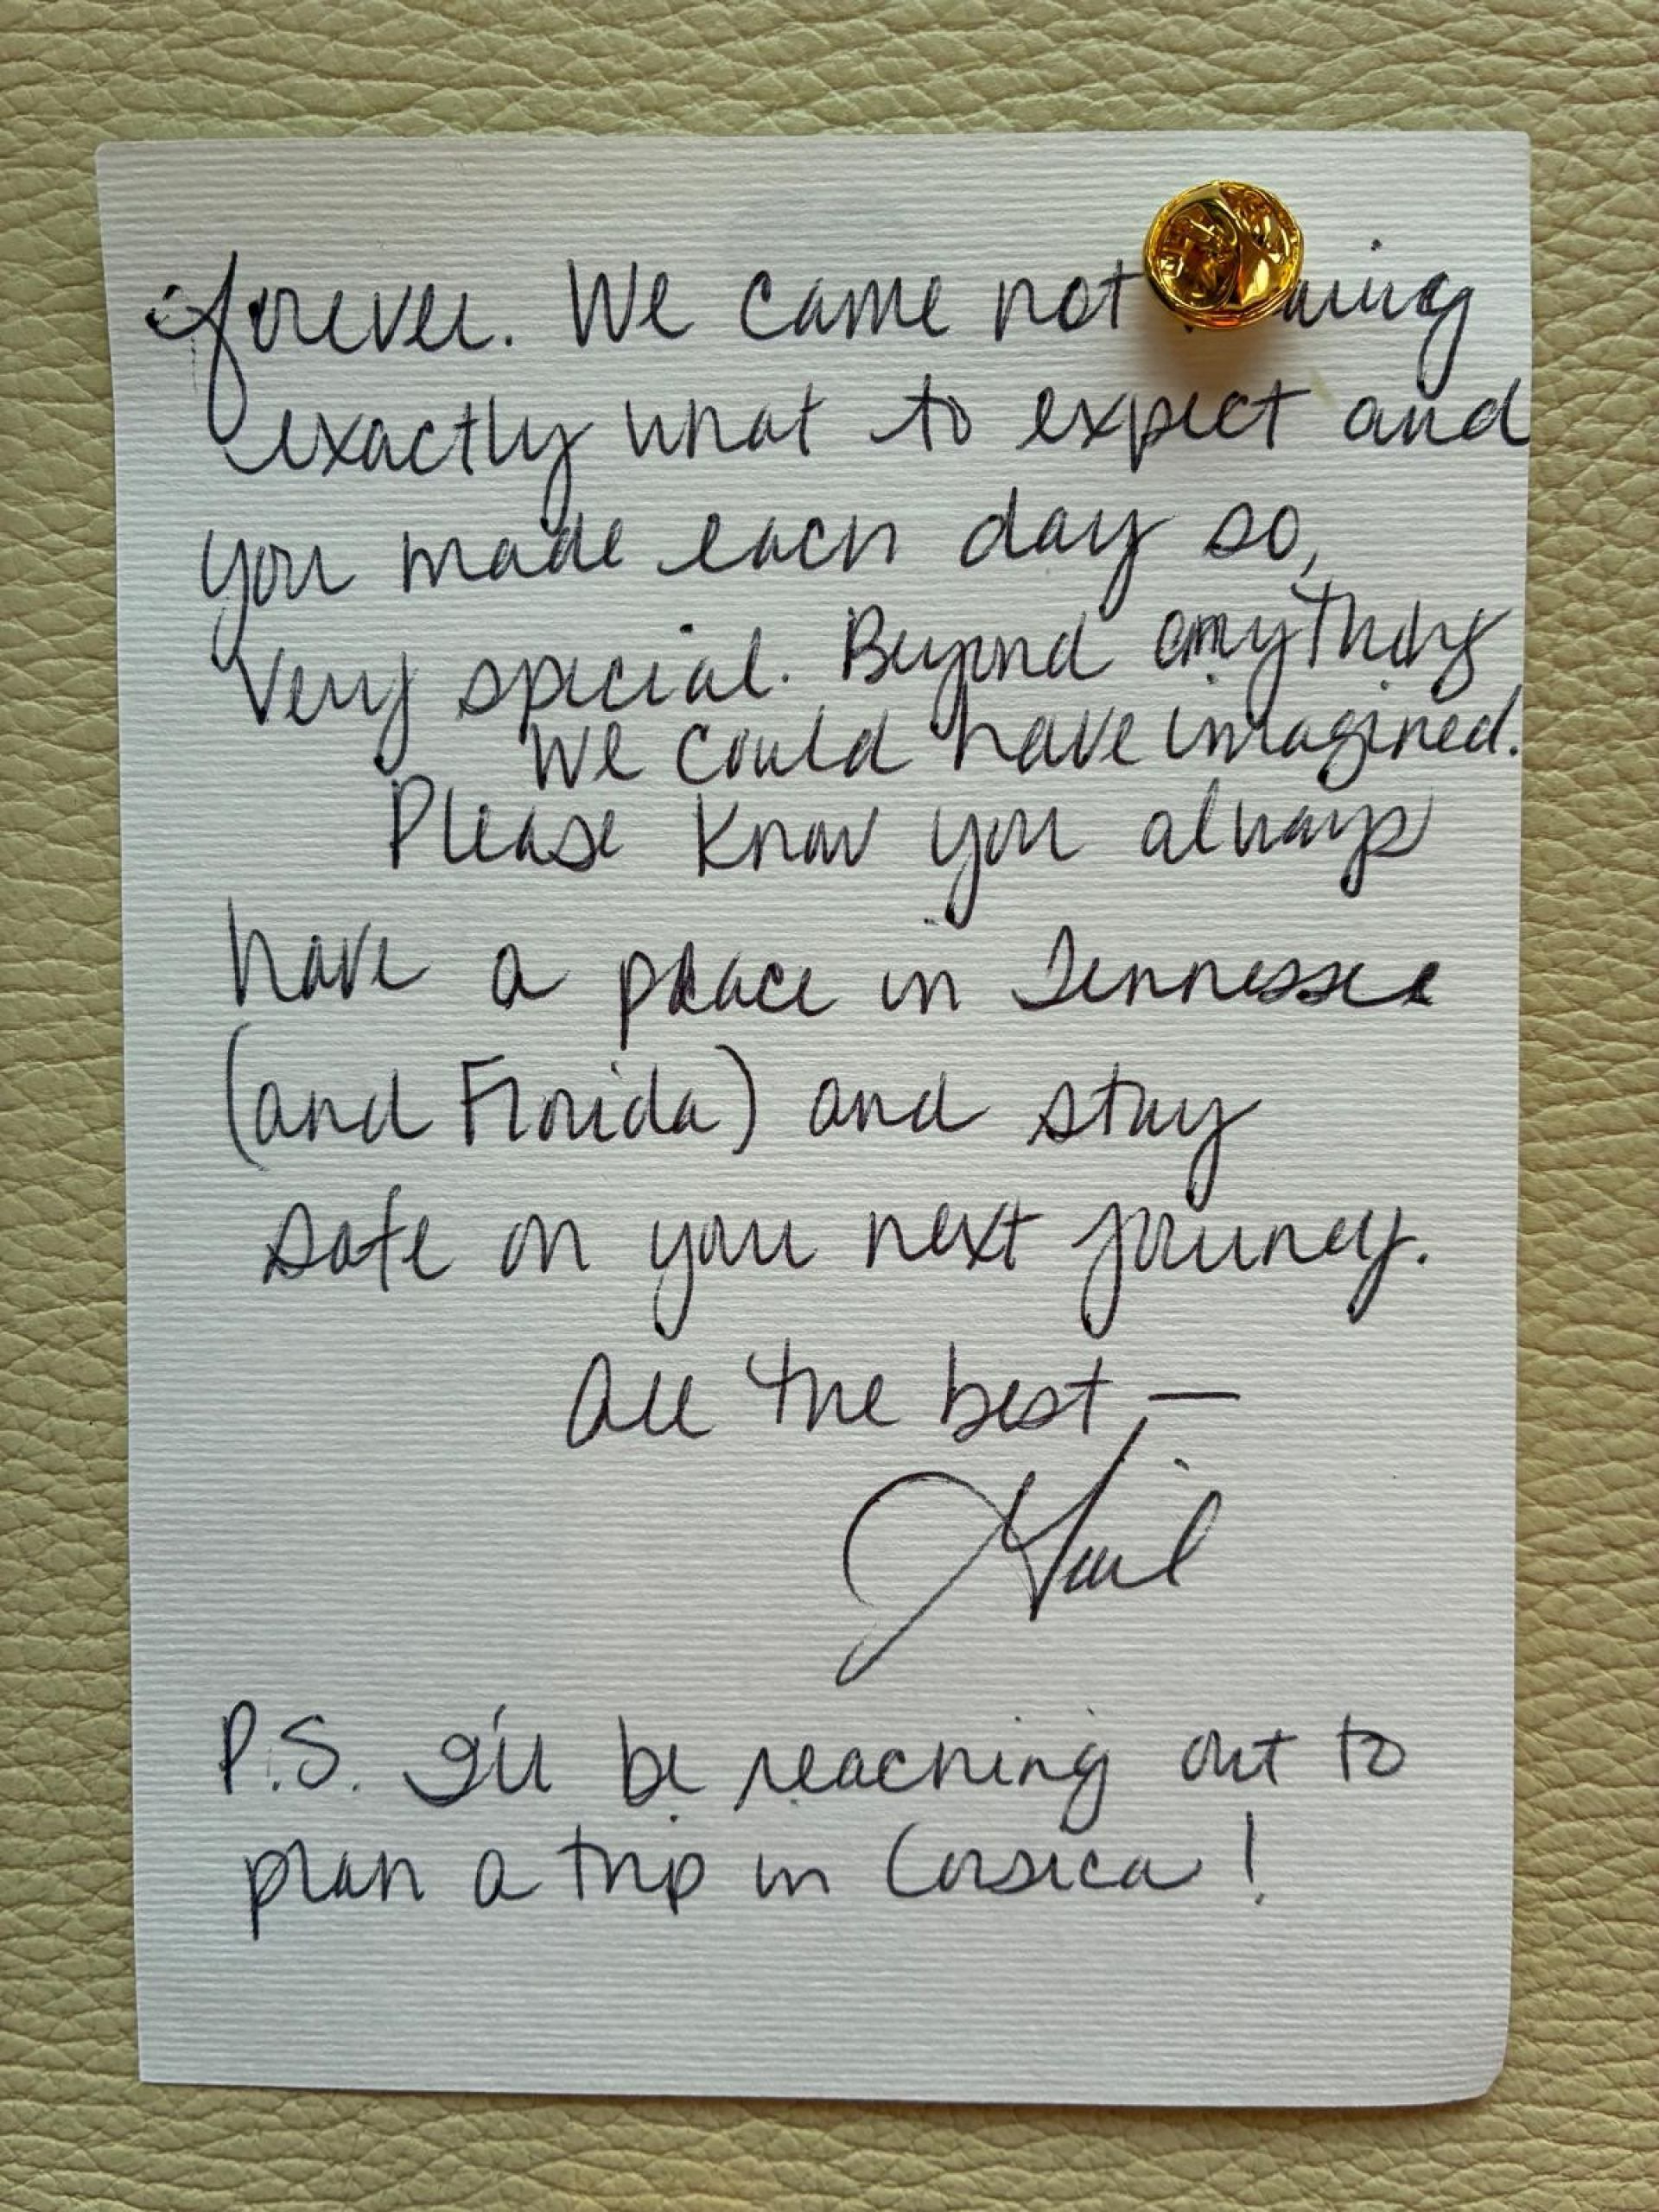 forever. We came not
exactly what to expect and
you made each day so,
very special. Beyond anything
we could have imagined.
Please know you always
have a place in Tennessee
(and Florida) and stay
safe on your next journey.
All the best, —
Gail
P.S. I'll be reaching out to
plan a trip in Corsica!